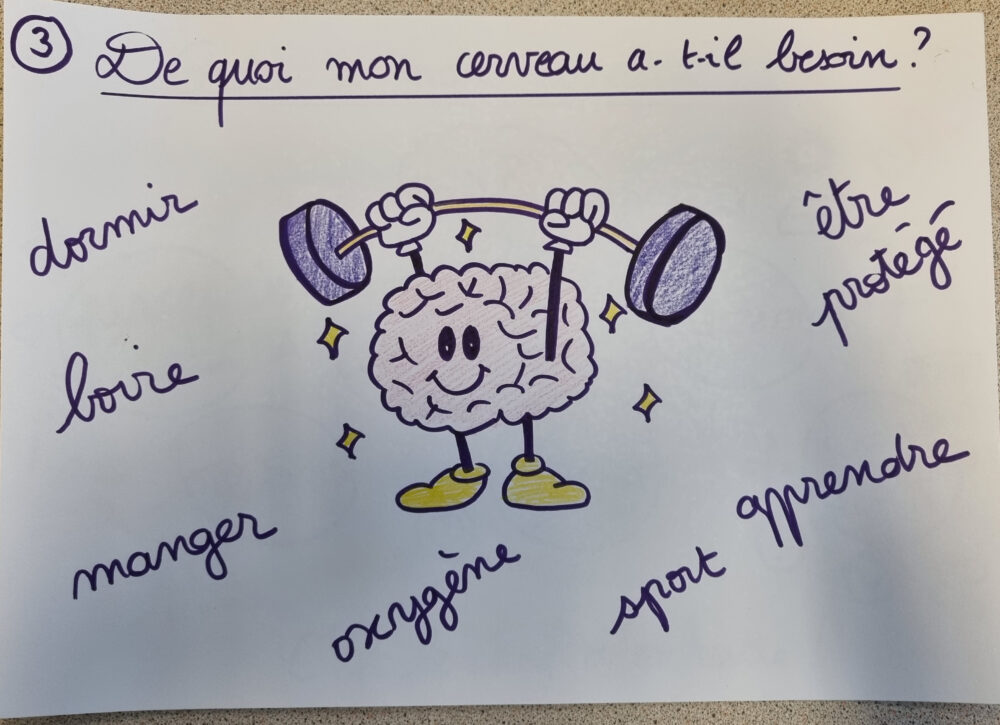 3
De quoi mon cerveau a-t-il besoin ?
dormir
être
protégé
boire
apprendre
manger
oxygène
sport